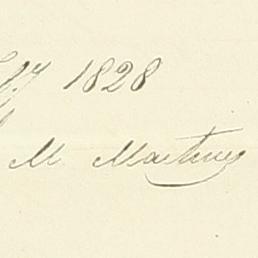 1828
M. Martinez